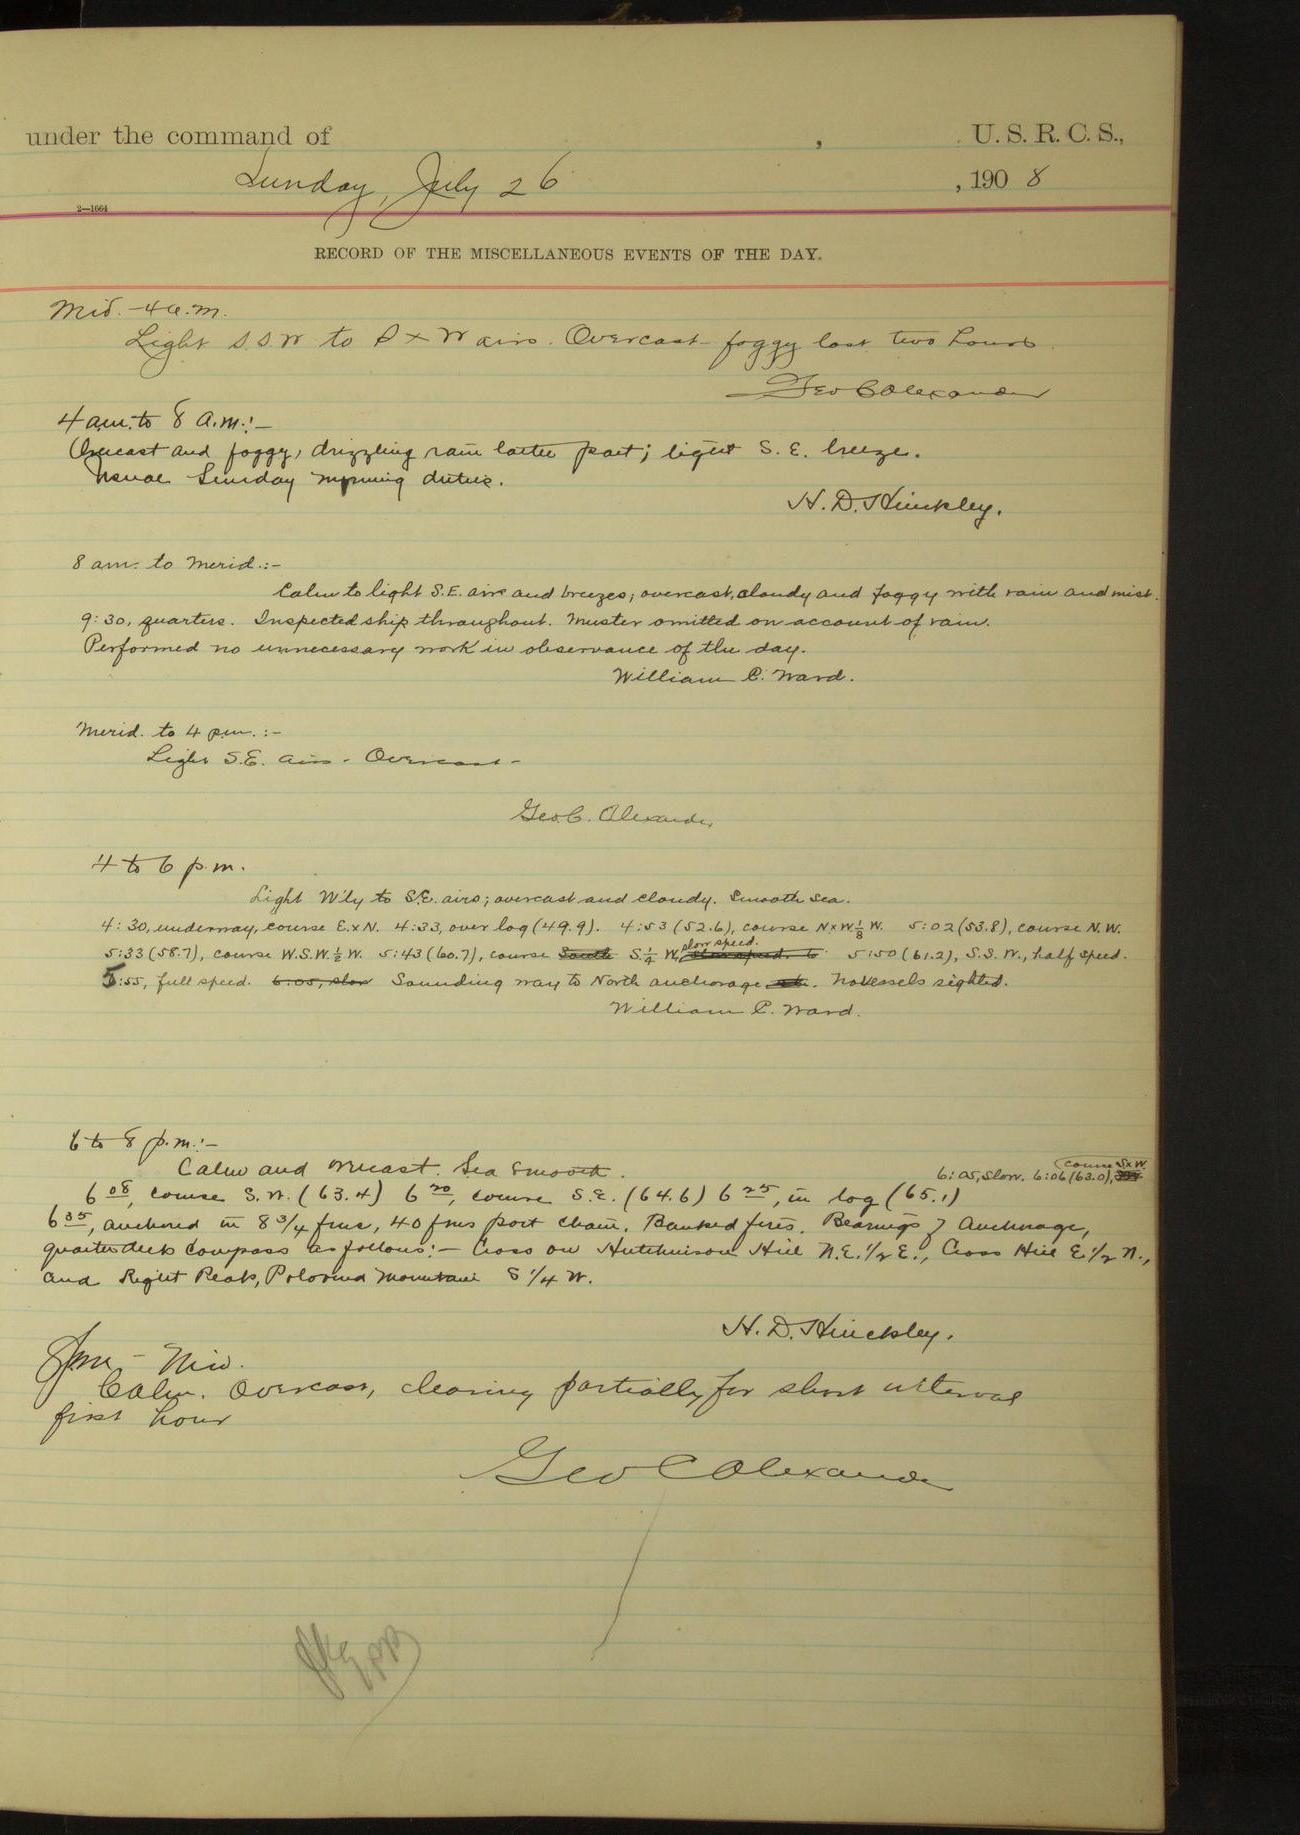 under the command of , U. S. R. C. S.,
Sunday, July 26 , 1908
2—1664
RECORD OF THE MISCELLANEOUS EVENTS OF THE DAY.
Mid. - 4 a.m.
Light S.S.W to S x W airs. Overcast - foggy last two hours
Geo C Alexander
4 a.m. to 8 a.m.:-
Overcast and foggy, drizzling rain latter part; light S. E. breeze.
Usual Sunday morning duties.
H. D. Hinckley.
8 am. to Merid.:-
Calm to light S.E. airs and breezes; overcast, cloudy and foggy with rain and mist.
9:30, quarters. Inspected ship throughout. Muster omitted on account of rain.
Performed no unnecessary work in observance of the day.
William C. Ward.
Merid. to 4 p.m.:-
Light S.E. airs - Overcast -
Geo. C. Alexander
4 to 6 p.m.
Light W'ly to S.E. airs; overcast and cloudy. Smooth sea.
4:30, underway, course E.xN. 4:33, over log (49.9). 4:53 (52.6), course NxW⅛W. 5:02 (53.8), course N.W.
5:33 (58.7), course W.S.W.½W. 5:43 (60.7), course South S.¼ W, slow speed. 5:50 (61.2), S.S.W., half speed.
5:55, full speed. 6:05, slow Sounding way to North anchorage. No vessels sighted.
William C. Ward.
6 to 8 p.m.:-
Calm and overcast. Sea smooth.
6:05, slow. 6:06 (63.0), course SxW.
6 08, course S.W. (63.4) 6 20, course S.E. (64.6) 6 25, in log (65.1)
6 35, anchored in 8 3/4 fms, 40 fms port chain. Banked fires. Bearings of Anchorage,
quarterdeck compass as follows:- Cross on Hutchinson Hill N.E. 1/2 E., Cross Hill E. 1/2 N.,
and Right Peak, Polovina Mountain S 1/4 W.
H. D. Hinckley.
8 pm - Mid.
Calm. Overcast, clearing partially for short interval
first hour
Geo C Alexander